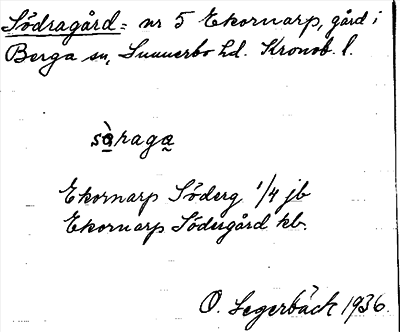 Södragård = nr 5 Ekornarp, gård i
Berga sn, Sunnerbo hd. Kronob. l.
sò̱raga̰
Ekornarp Söderg 1/4 jb
Ekornarp Södergård kb.
O. Segerbäck 1936.